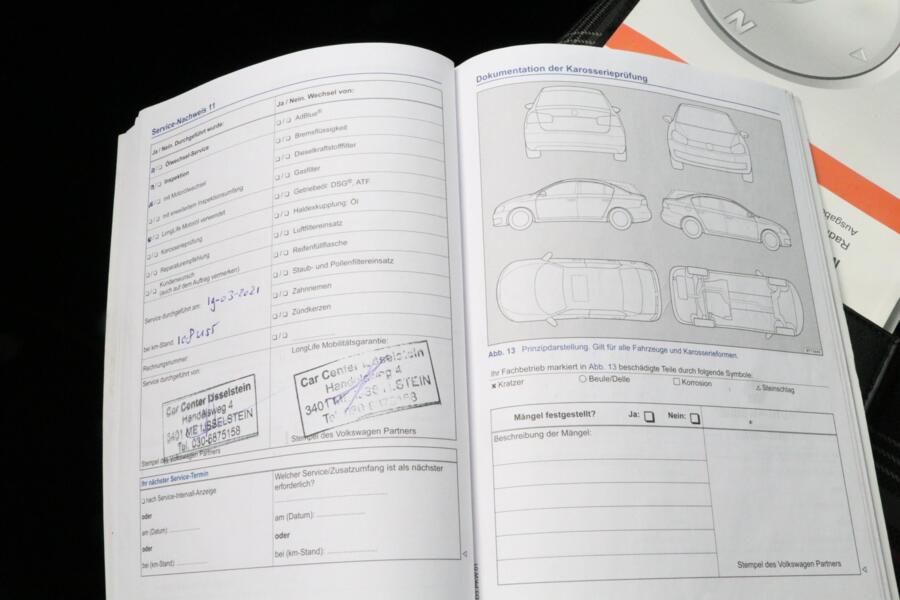 Service-Nachweis 11
Ja / Nein. Durchgeführt wurde:
Ölwechsel-Service
Inspektion
mit Motorölwechsel
mit erweitertem Inspektionsumfang
LongLife Motoröl verwendet
Karosserieprüfung
Reparaturempfehlung
Kundenwunsch
(auch auf dem Auftrag vermerken)
Service durchgeführt am: 19-03-2021
bei km-Stand:
Rechnungsnummer:
Service durchgeführt von:
Car Center IJsselstein
Handelsweg 4
3401 ME IJSSELSTEIN
Tel. 030-6875158
Stempel des Volkswagen Partners
Ja / Nein. Wechsel von:
AdBlue®
Bremsflüssigkeit
Dieselkraftstofffilter
Gasfilter
Getriebeöl: DSG®, ATF
Haldexkupplung: Öl
Luftfiltereinsatz
Reifenfüllflasche
Staub- und Pollenfiltereinsatz
Zahnriemen
Zündkerzen
LongLife Mobilitätsgarantie:
Car Center IJsselstein
Handelsweg 4
Stempel des Volkswagen Partners
Ihr nächster Service-Termin
nach Service-Intervall-Anzeige
oder
am (Datum):
oder
bei (km-Stand):
Welcher Service/Zusatzumfang ist als nächster
erforderlich?
am (Datum):
oder
bei (km-Stand):
Dokumentation der Karosserieprüfung
Abb. 13 Prinzipdarstellung. Gilt für alle Fahrzeuge und Karosserieformen.
Ihr Fachbetrieb markiert in Abb. 13 beschädigte Teile durch folgende Symbole:
x Kratzer Beule/Delle Korrosion Steinschlag
Mängel festgestellt? Ja: Nein:
Beschreibung der Mängel:
Stempel des Volkswagen Partners
N
Ausgabe